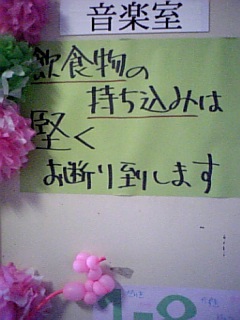 音楽室
飲食物の
持ち込みは
堅く
お断り到します
1-8